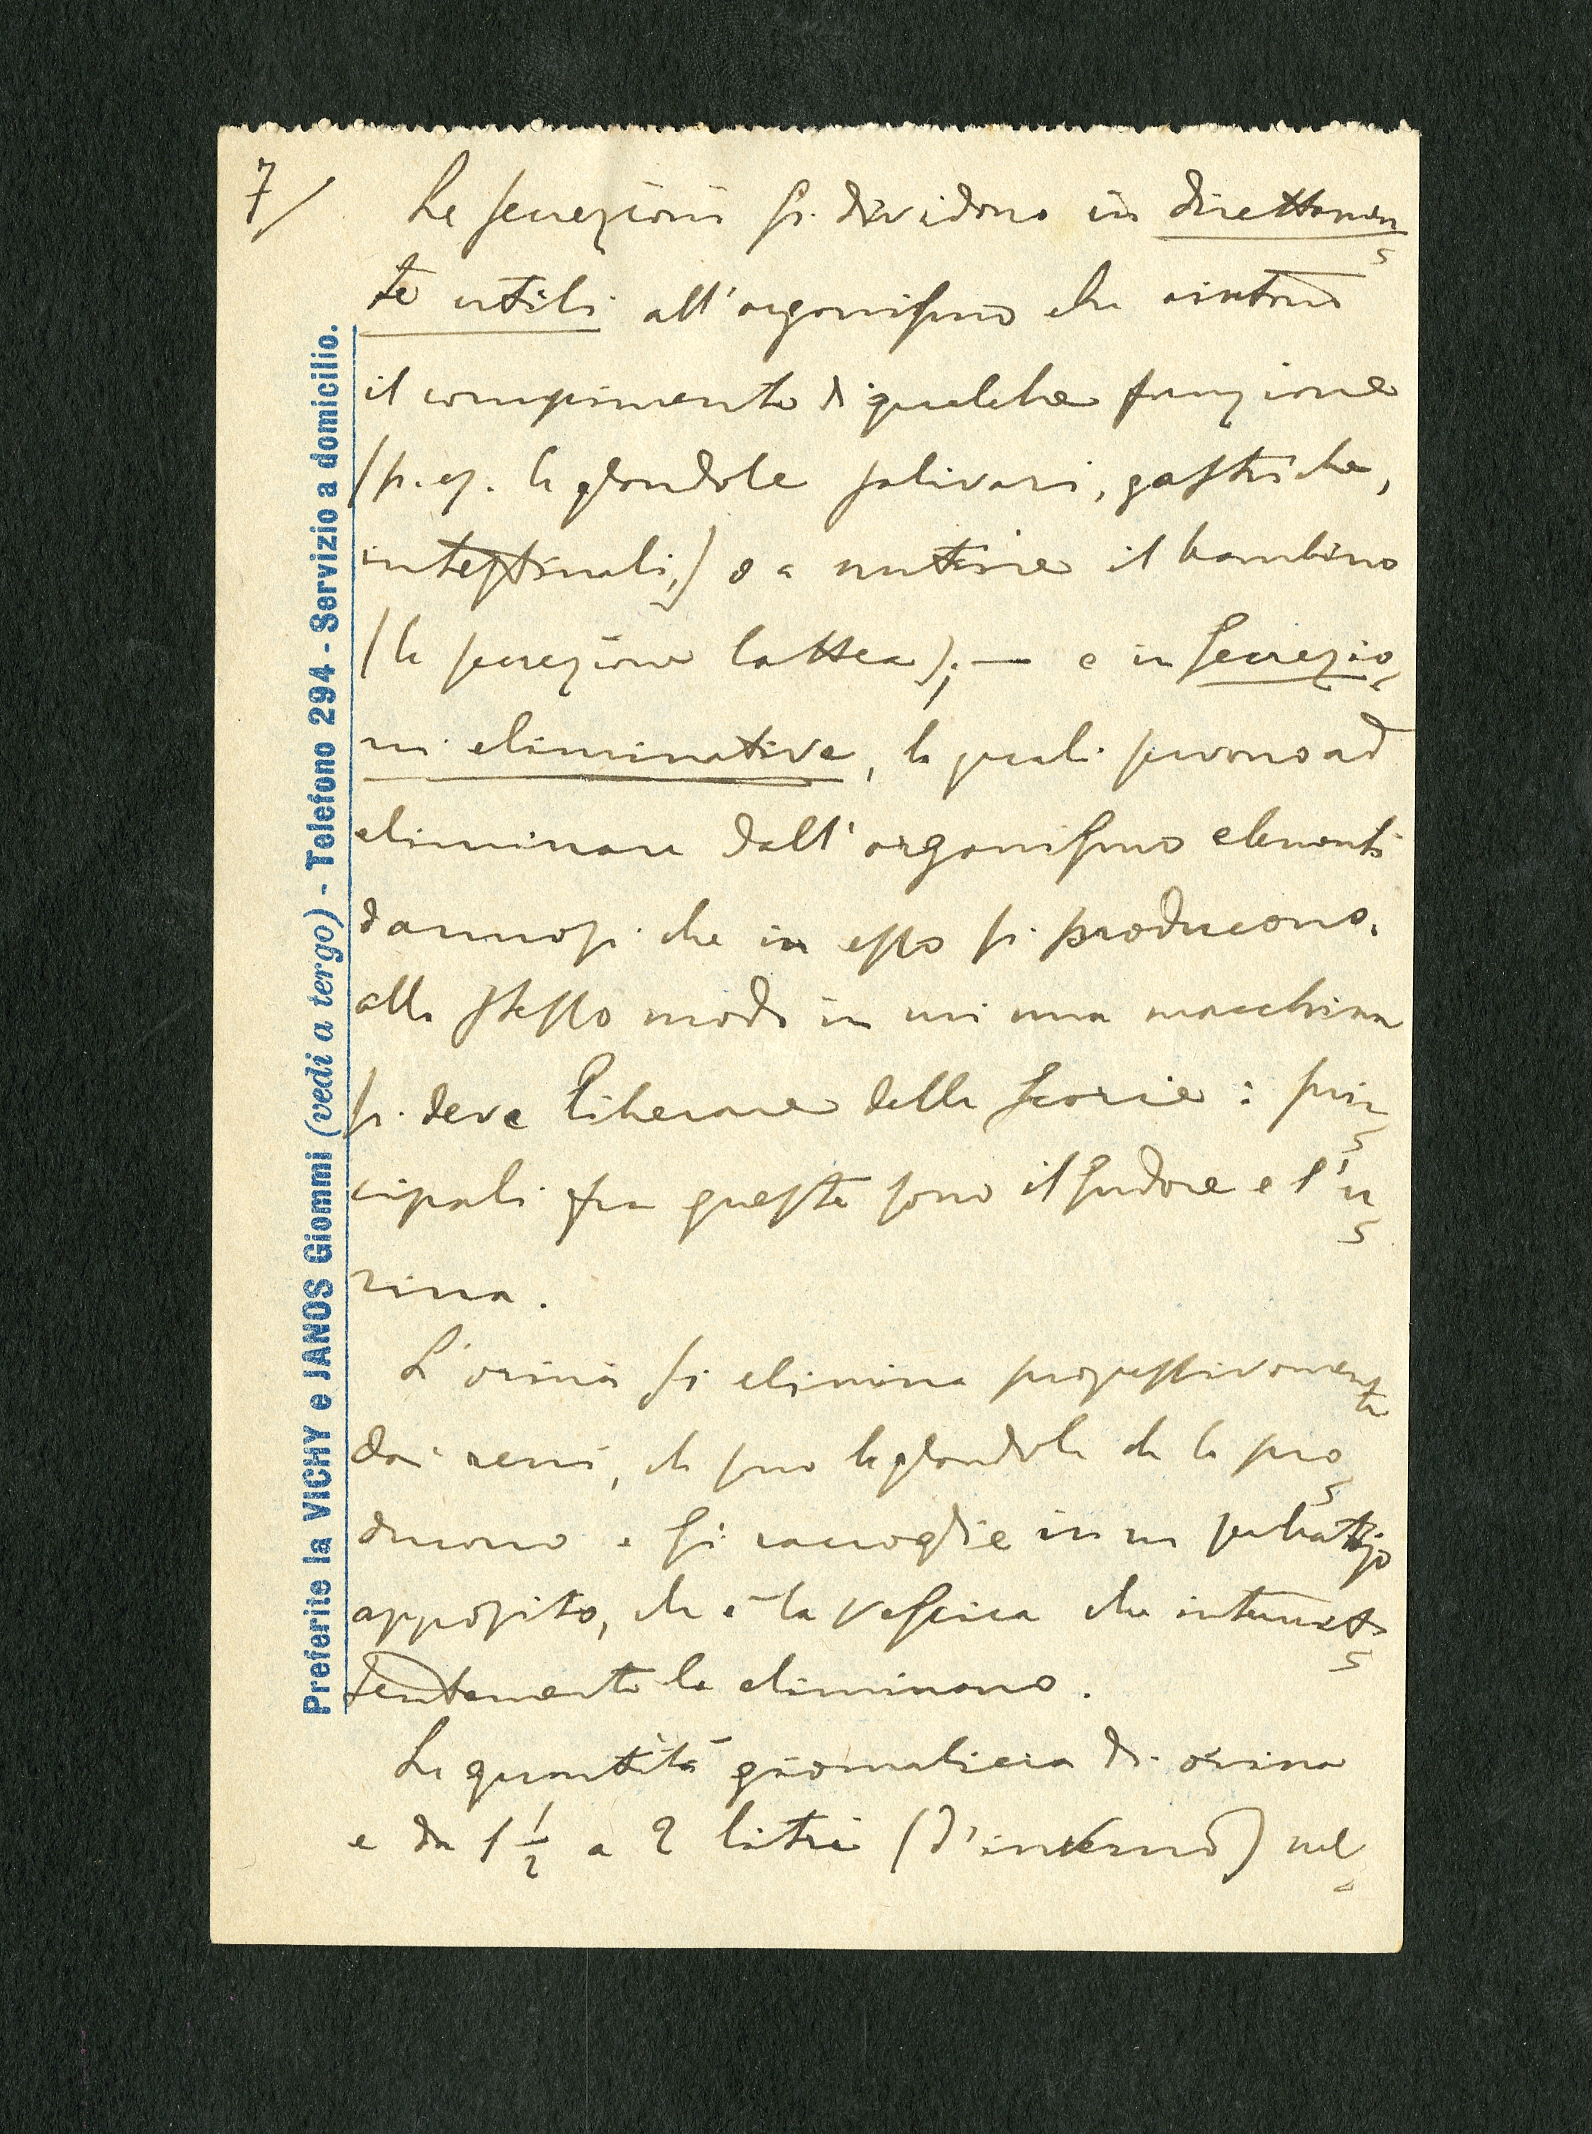 7/ Le secrezioni si dividono in direttamen-
te utili all'organismo che aiutano
il compimento di qualche funzione
(p. es. le glandole salivari, gastriche,
intestinali,) o a nutrire il bambino
(la secrezione lattea); — e in secrezio-
ni eliminative, le quali servono ad
eliminare dall'organismo elementi
dannosi che in esso si producono.
allo stesso modo in cui una macchina
si deve liberare delle scorie: prin-
cipali fra queste sono il sudore e l'u-
rina.
L'orina si elimina progressivamente
dai reni, che sono le glandole che la pro-
ducono e si raccoglie in un serbatojo
apposito, che è la vescica che intermet-
tentemente la eliminano.
La quantità giornaliera di orina
e da 1 1/2 a 2 litri (d'inverno) nel-
Preferite la VICHY e JANOS Giommi (vedi a tergo) - Telefono 294 - Servizio a domicilio.